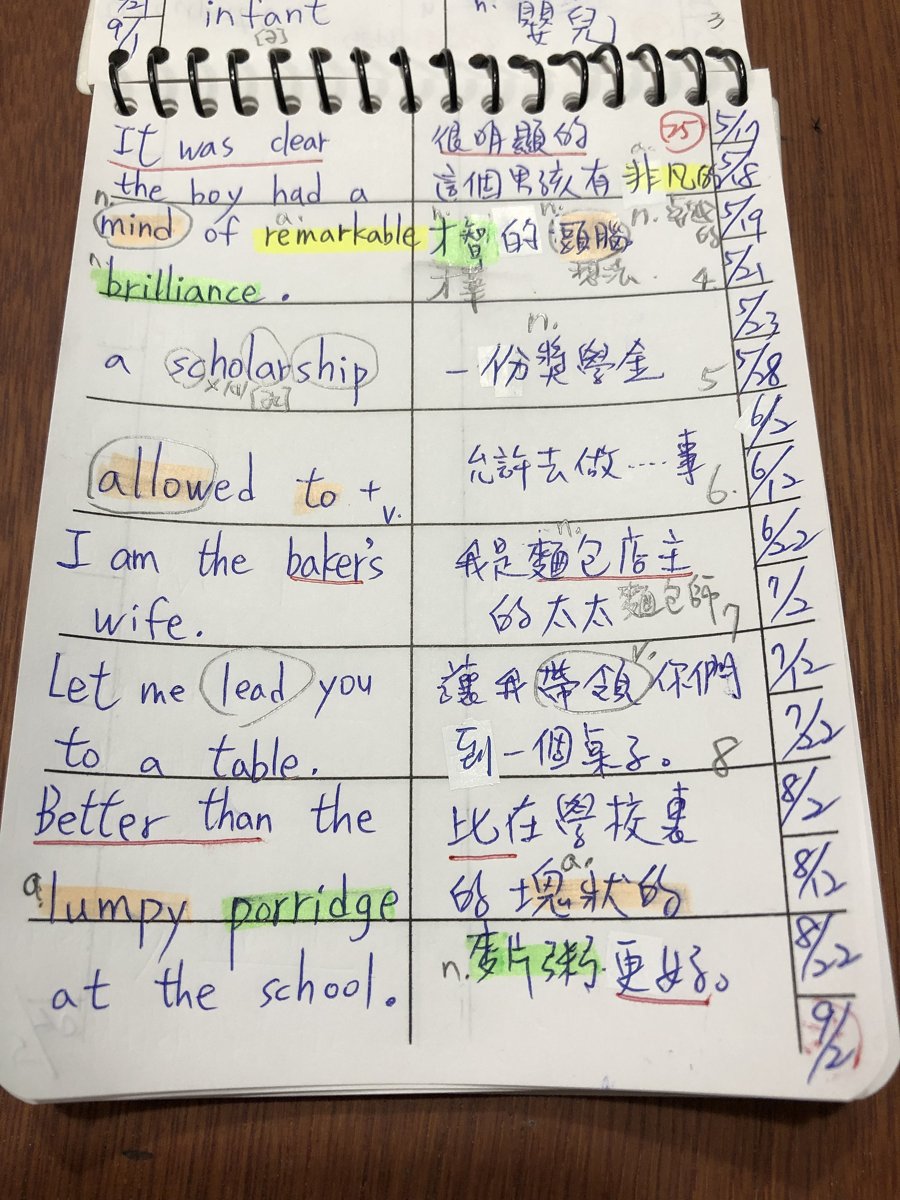 9/1 infant n. 嬰兒 3
[ə]
It was clear 很明顯的 25 5/17
the boy had a 這個男孩有 a. 非凡的 5/18
n. mind of a. remarkable n. 才智 的 n. 頭腦 n. 5/19
n. brilliance. 才華 想法 4 5/21
5/23
a scholarship 一份 n. 獎學金 5 5/28
6/2
allowed to + v. 允許去做……事 6. 6/12
I am the baker's 我是 n. 麵包店主 6/22
wife. 的太太 麵包師 7 7/2
Let me lead you 讓我 v. 帶領 你們 7/12
to a table. 到一個桌子。 8 7/22
Better than the 比在學校裏 8/2
a. lumpy porridge 的 a. 塊狀的 8/12
at the school. n. 麥片粥 更好。 8/22
9/2